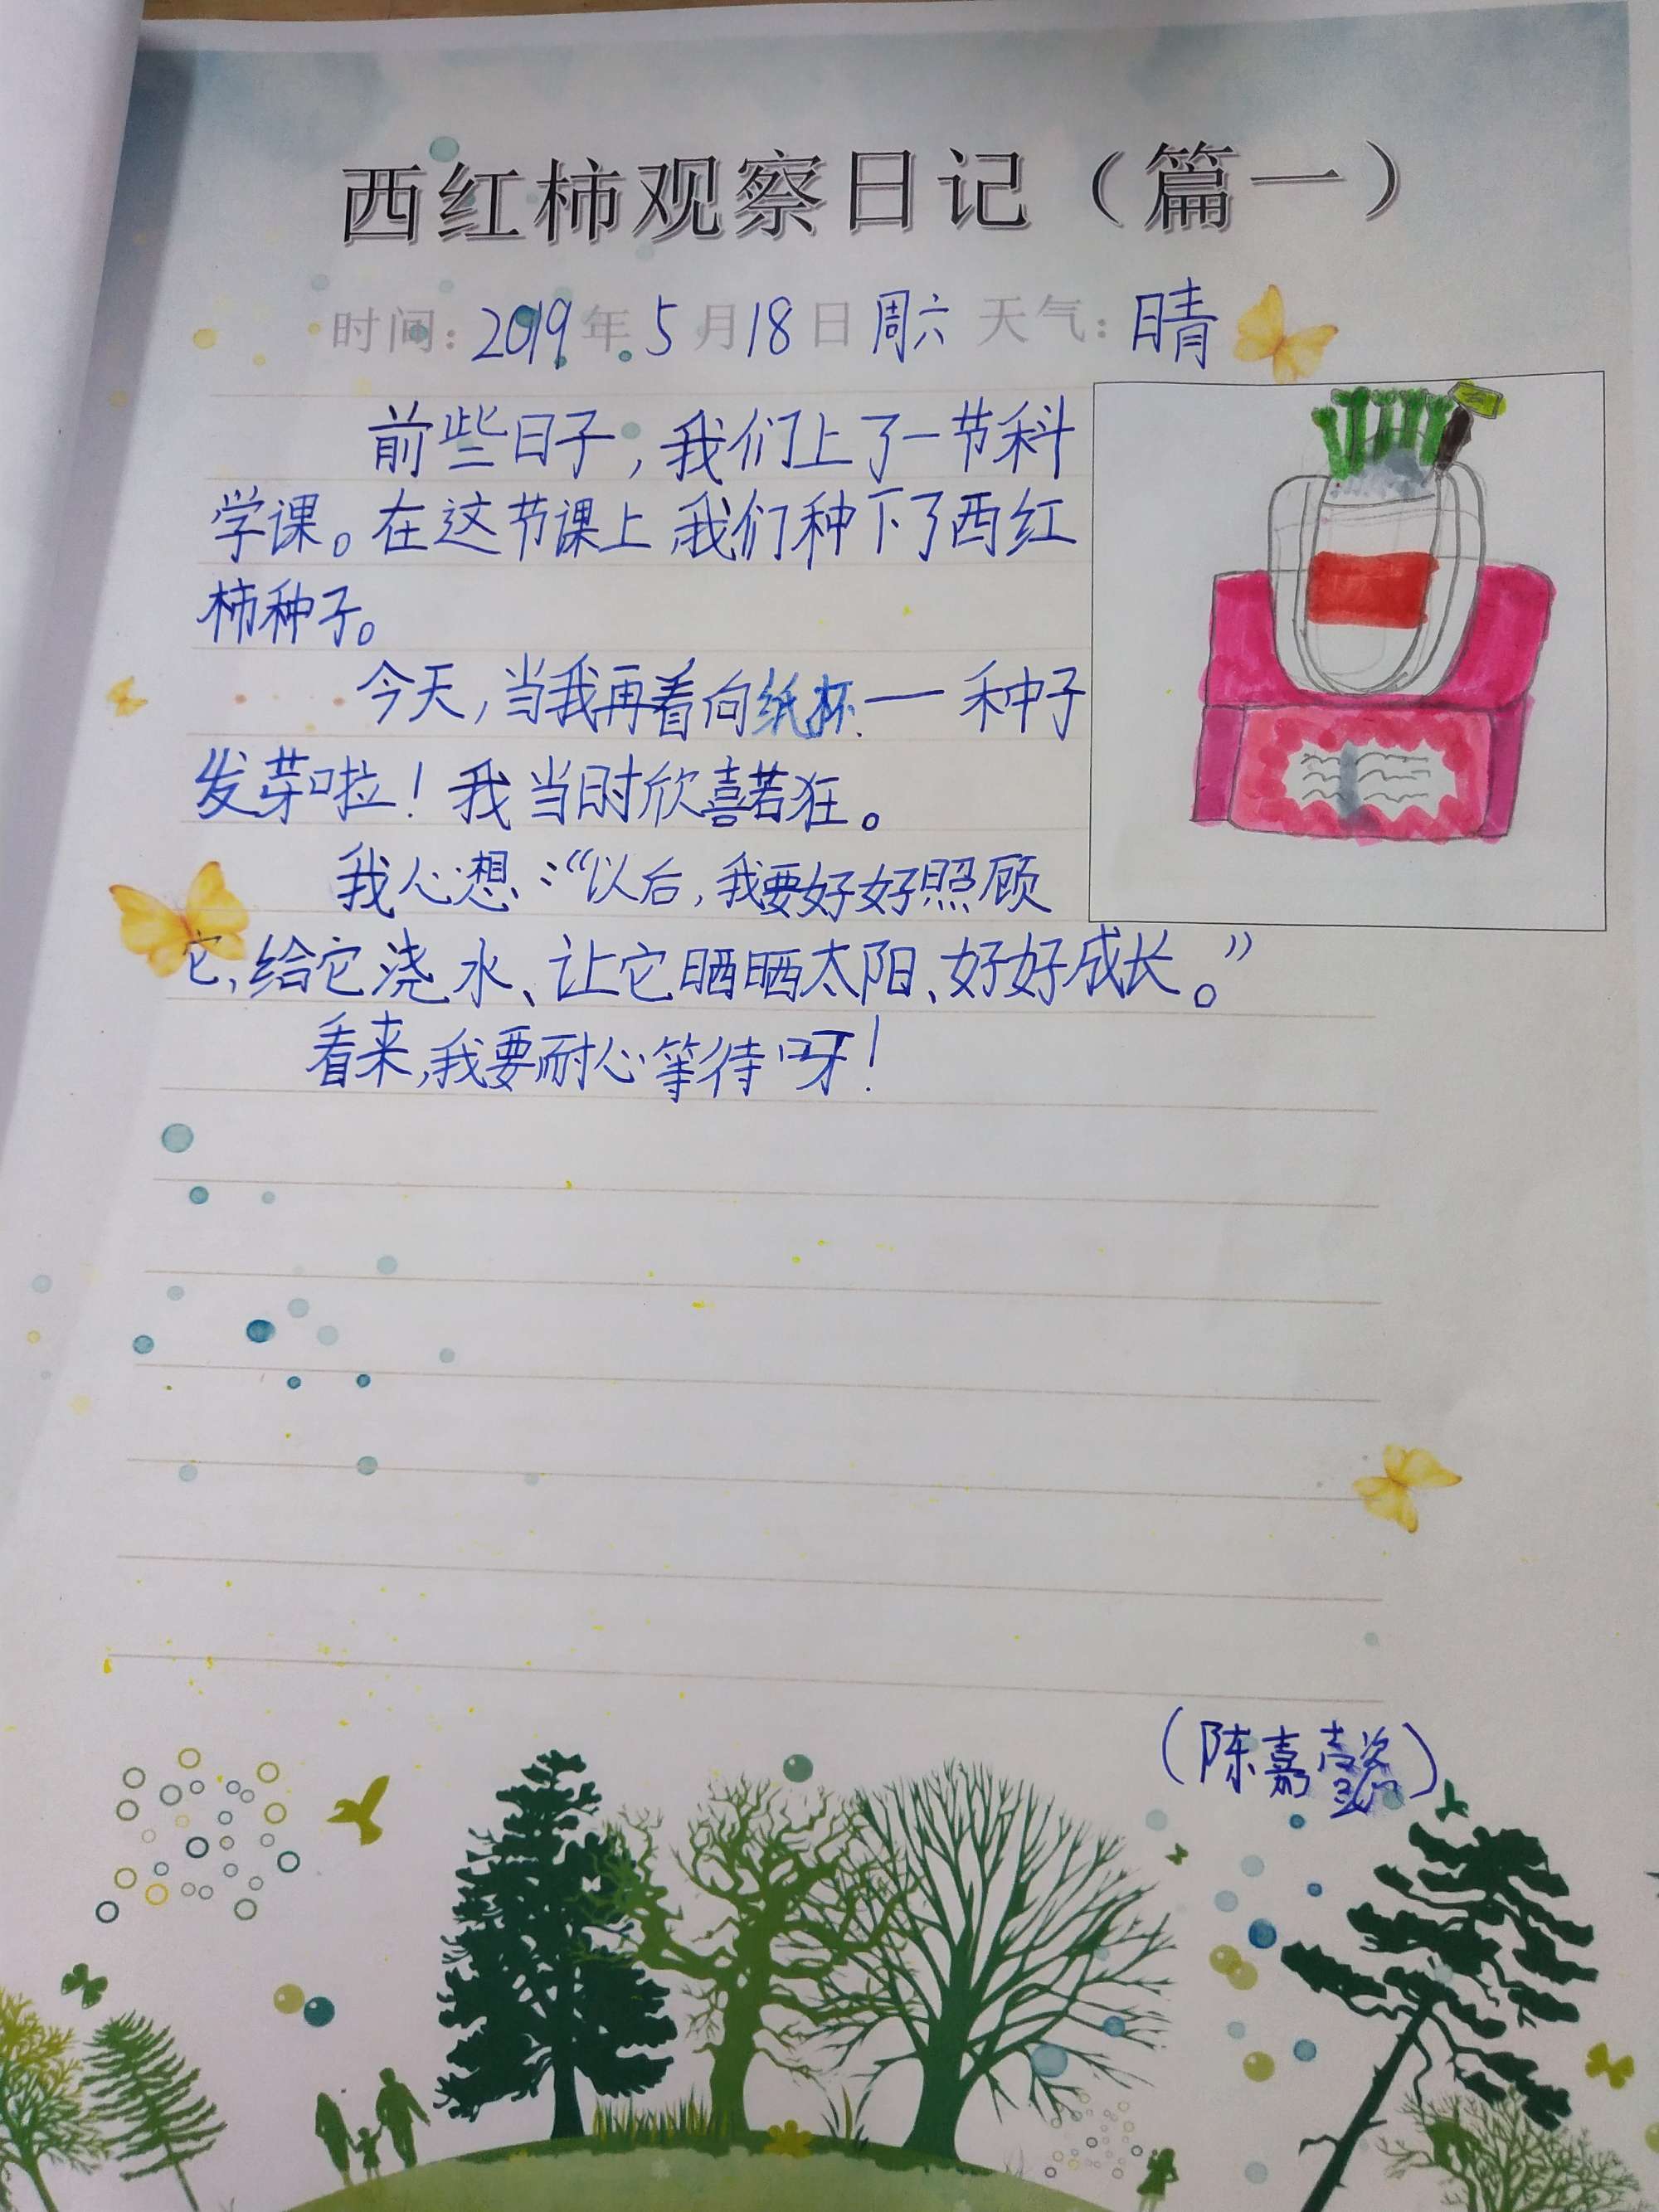 西红柿观察日记（篇一）
时间：2019年5月18日 周六 天气：晴
前些日子，我们上了一节科
学课。在这节课上我们种下了西红
柿种子。
今天，当我再看向纸杯—种子
发芽啦！我当时欣喜若狂。
我心想：“以后，我要好好照顾
它，给它浇水、让它晒晒太阳、好好成长。”
看来，我要耐心等待呀！
（陈嘉懿）